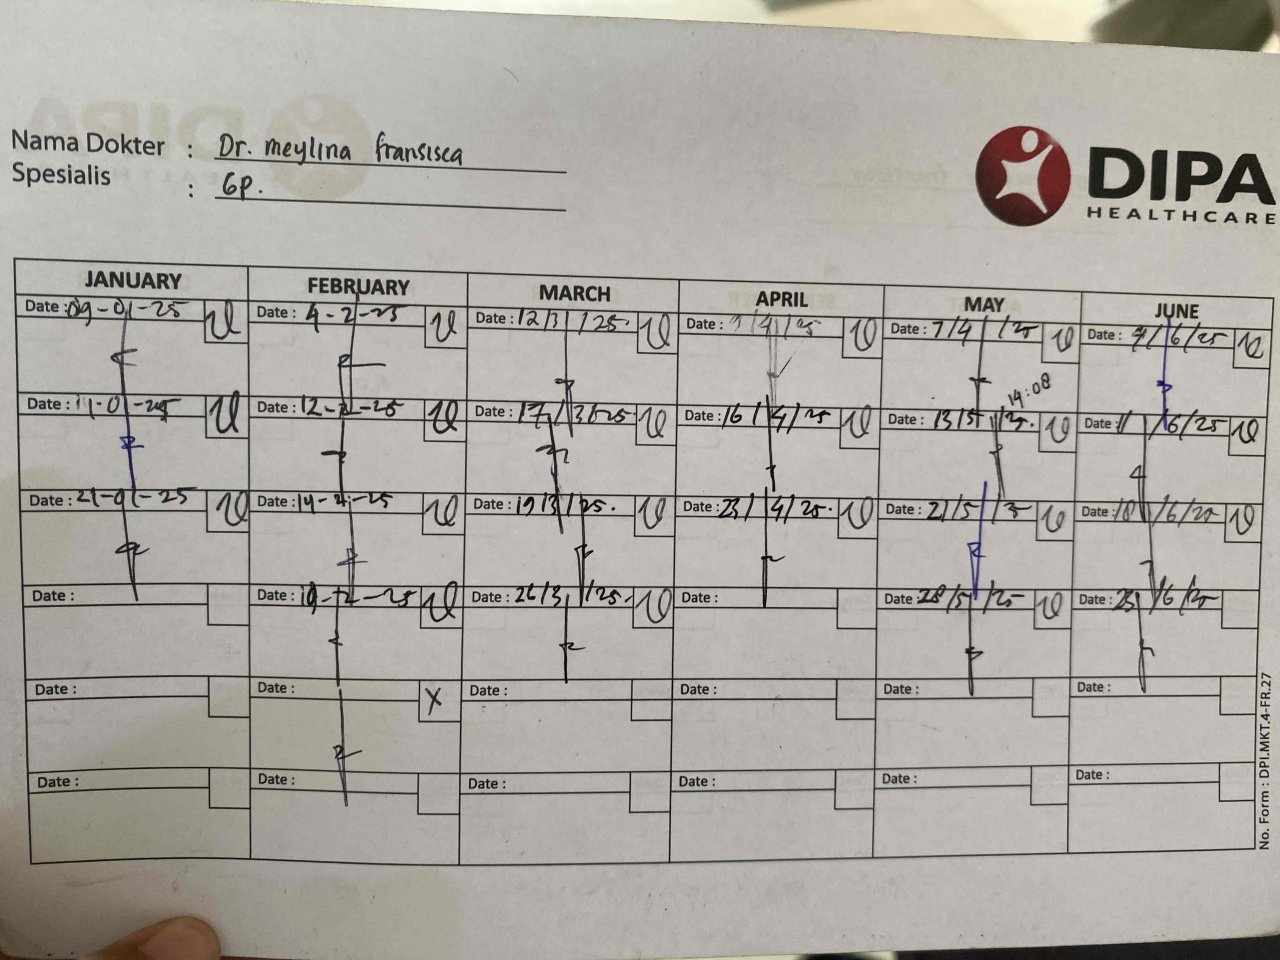 Nama Dokter : Dr. meylina fransisca
Spesialis : GP.
DIPA
HEALTHCARE
JANUARY FEBRUARY MARCH APRIL MAY JUNE
Date : 09-01-25 Date : 4-2-25 Date : 12/3/25. Date : 9/4/25 Date : 7/4/25 Date : 4/6/25
14:08
Date : 14-01-25 Date : 12-2-25 Date : 17/3/25 Date : 16/4/25 Date : 13/5/25. Date : 11/6/25
Date : 21-01-25 Date : 14-2-25 Date : 19/3/25. Date : 23/4/25. Date : 21/5/25 Date : 18/6/25
Date : Date : 19-2-25 Date : 26/3/25. Date : Date : 28/5/25 Date : 25/6/25
Date : Date : X Date : Date : Date : Date :
Date : Date : Date : Date : Date : Date :
No. Form : DPI.MKT.4-FR.27